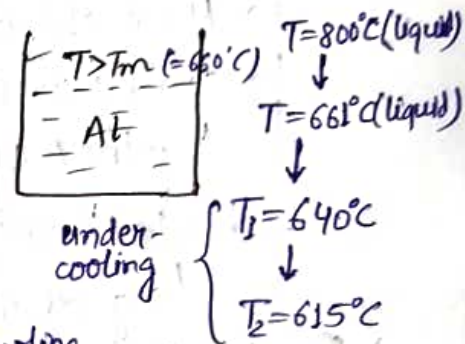 T>Tm (=660°C)
Al
T=800°C(liquid)
↓
T=661°C(liquid)
↓
under-
cooling
T1=640°C
↓
T2=615°C